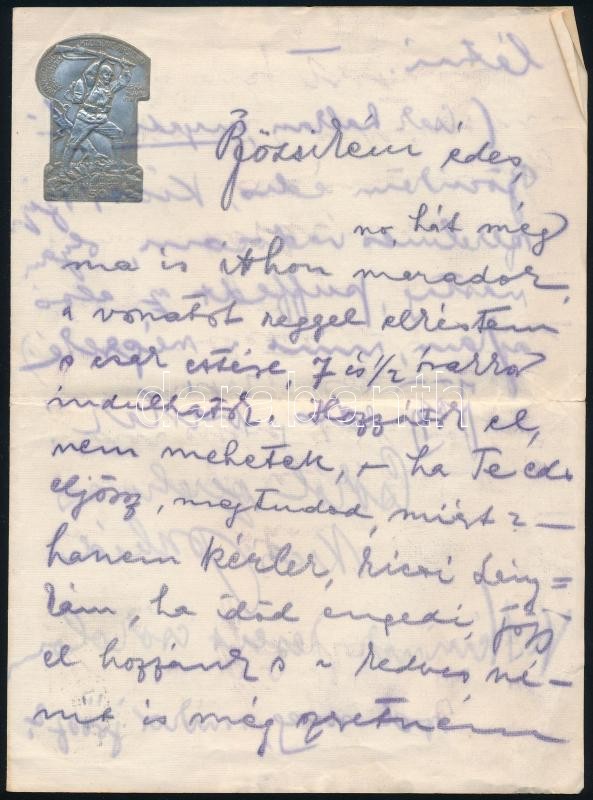 Bözsikém édes,
no, hát még
ma is itthon maradok,
a vonatot reggel elkéstem
s csak estére, 7 és 1/2 órakor
indulhatok. Hozzátok el,
nem mehetek, – ha Te édes
eljösz, megtudod, miért? –
hanem kérlek, kicsi leny=
kám, ha időd engedi, jőjj
el hozzánk s a kedves né–
nit is még szeretném
darabanth